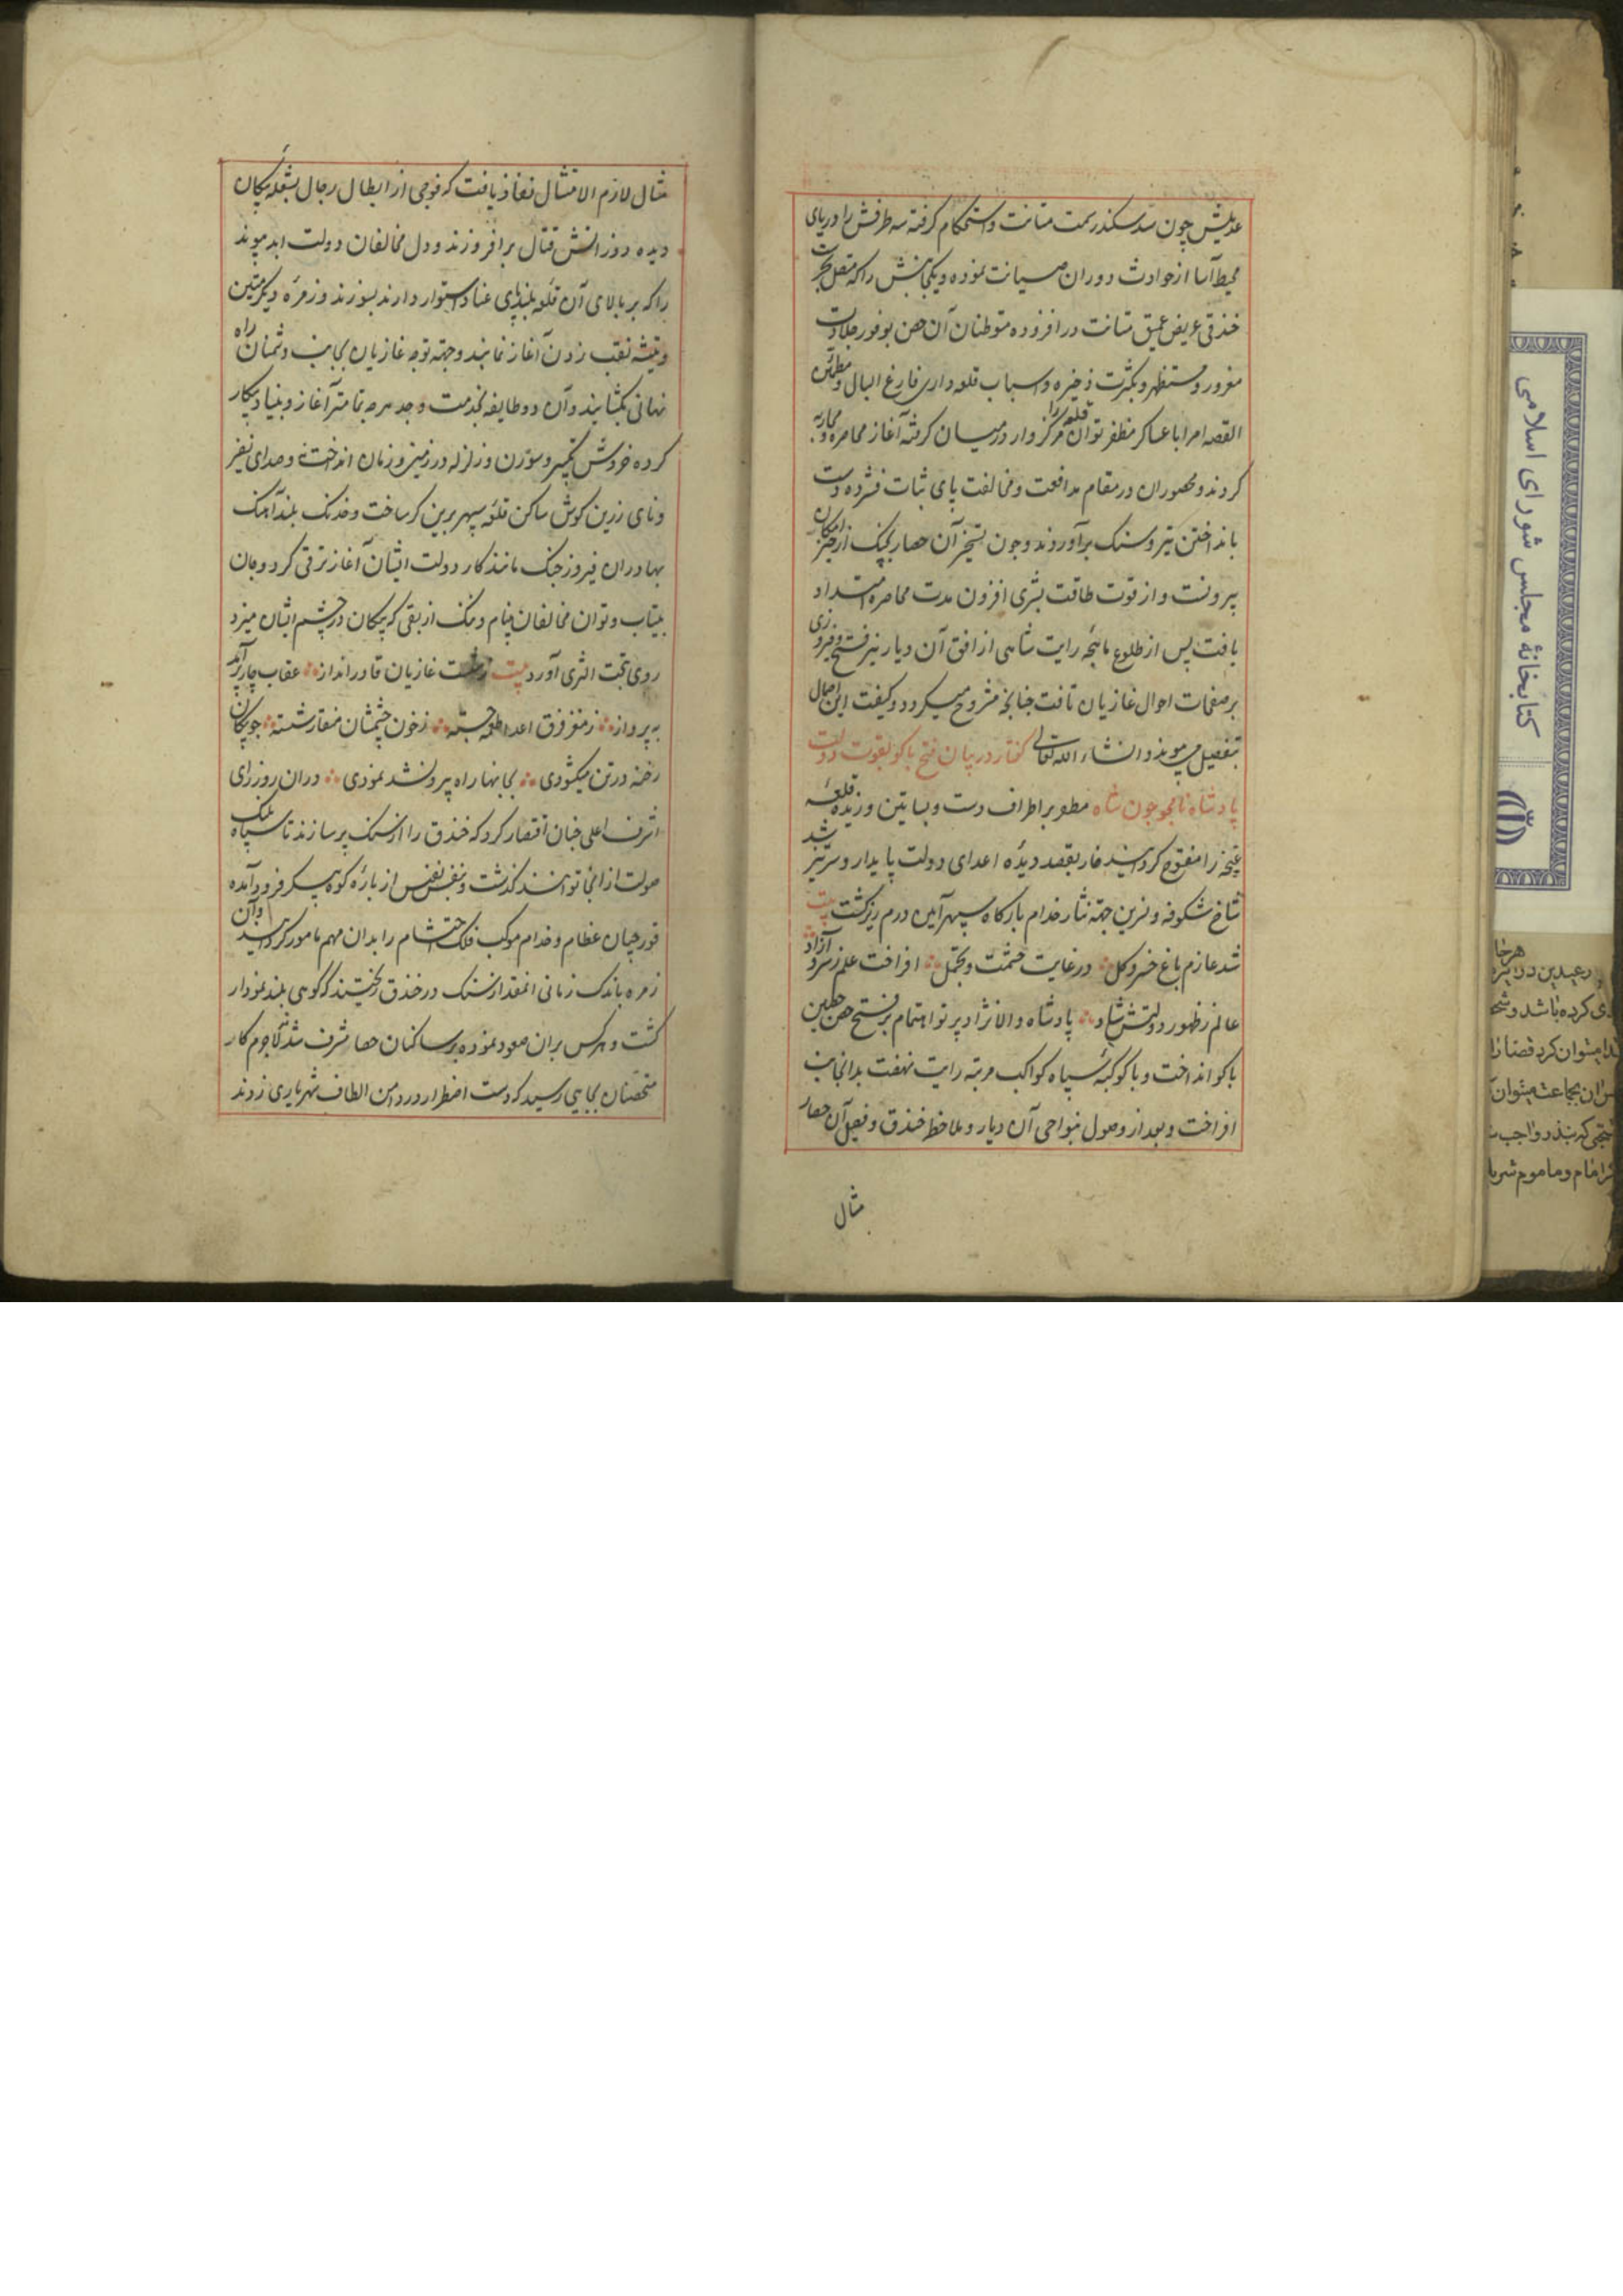 عدیلش چون سد سکندر سمت متانت و استحکام گرفته سه طرفش را دریای
محیط آسا از حوادث دوران صیانت نموده و یکجانبش را که متصل ببر است
خندقی عریض عمیق متانت در افزوده متوطنان آن حصن بوفور جلادت
مغرور و مستظهر و بکثرت ذخیره و اسباب قلعه داری فارغ البال و مطمئن
القصه امرا با عساکر مظفر توان قلعه را مرکزوار در میان گرفته آغاز محاصره و محاربه
کردند و محصوران در مقام مدافعت و مخالفت پای ثبات فشرده دست
بانداختن تیر و سنک برآوردند و چون تسخیر آن حصار بجنک از حیز امکان
بیرونست و از قوت طاقت بشری افزون مدت محاصره امتداد
یافت پس از طلوع ماهچه رایت شاهی از افق آن دیار نیر فتح و فیروزی
بر صفحات احوال غازیان تافت چنانچه مشروح میکردد و کیفیت این اجمال
بتفصیل می پیوندد انشاء الله تعالی گفتار در بیان فتح باکو بقوت دولت
پادشاه نامجو چون شاه مطر بر اطراف دشت و بساتین وزیده قلعه
غنچه را مفتوح کردانید خار بقصد دیده اعدای دولت پایدار سر تیز شد
شاخ شکوفه و نسرین جهة نثار خدام بارگاه سپهر آیین درم ریز گشت بیت
شد عازم باغ خسرو گل در غایت حشمت و تجمل افراخت علم ز سرو آزاد
عالم ز ظهور دولتش شاد پادشاه والانژاد پرتو اهتمام بر فتح حصن حصین
باکو انداخت و با کوکبه سپاه کواکب مرتبه رایت نهضت بدانجانب
افراخت و بعد از وصول بنواحی آن دیار و ملاحظه خندق و فصیل آن حصار
مثال
مثال لازم الامتثال نفاذ یافت که فوجی از ابطال رجال بشعله پیکان
دیده دوز آتش قتال برافروزند و دل مخالفان دولت ابد پیوند
را که بر بالای آن قلعه بلند پای عناد استوار دارند بسوزند و زمره دیگر متین
و تیشه نقب زدن آغاز نمایند و جهة توجه غازیان بجانب دشمنان راه
نهانی بکشایند و آن دو طایفه بخدمت و جد هر چه تمامتر آغاز و بنیاد پیکار
کرده خروش تکبیر و سورن و زلزله در زمین و زمان انداختند و صدای نفیر
و نای زرین گوش ساکن قلعه سپهر برین کر ساخت و خدنک بلند آهنک
بهادران فیروز جنک مانند کار دولت ایشان آغاز ترقی کرد و جان
بیتاب و توان مخالفان بی نام و ننک از برقی که پیکان در چشم ایشان میزد
روی بتحت الثری آورد بیت ز شست غازیان قادر انداز عقاب چار پر آمد
به پرواز ز مغز فرق اعدا طعمه جسته ز خون چشمشان منقار شسته چو پیکان
رخنه در تن میکشودی بجانها راه بیرونشد نمودی در آن روز رای
اشرف اعلی چنان اقتضا کرد که خندق را از سنک پر سازند تا سپاه فلک
صولت از آنجا توانند گذشت و بنفس نفیس از باره کوه پیکر فرود آمده
قورچیان عظام و خدام موکب فلک احتشام را بدان مهم مامور کردانید و آن
زمره باندک زمانی آنمقدار سنک در خندق ریختند که کوهی بلند نمودار
گشت و هر کس بران صعود نموده بر ساکنان حصار مشرف شدند لاجرم کار
متحصنان بجایی رسید که دست اضطرار در دامن الطاف شهریاری زدند
کتابخانهٔ مجلس شورای اسلامی